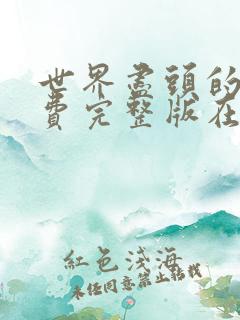 世界盡頭的
費完整版在
紅色淺海
未经同意禁止转载